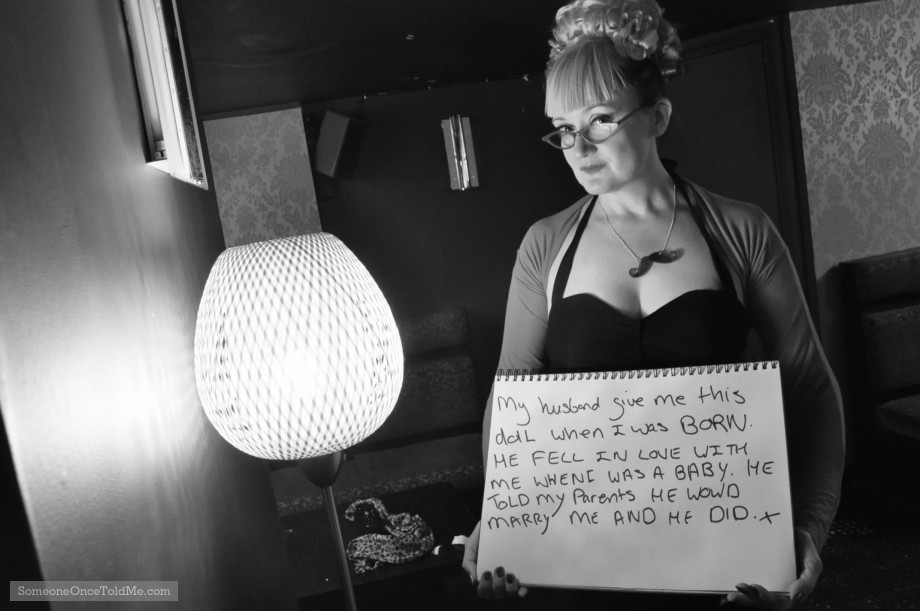 My husband give me this
doll when I was BORN.
HE FELL IN LOVE WITH
ME WHEN I WAS A BABY. HE
TOLD my Parents HE WOULD
MARRY ME AND HE DID.x
SomeoneOnceToldMe.com